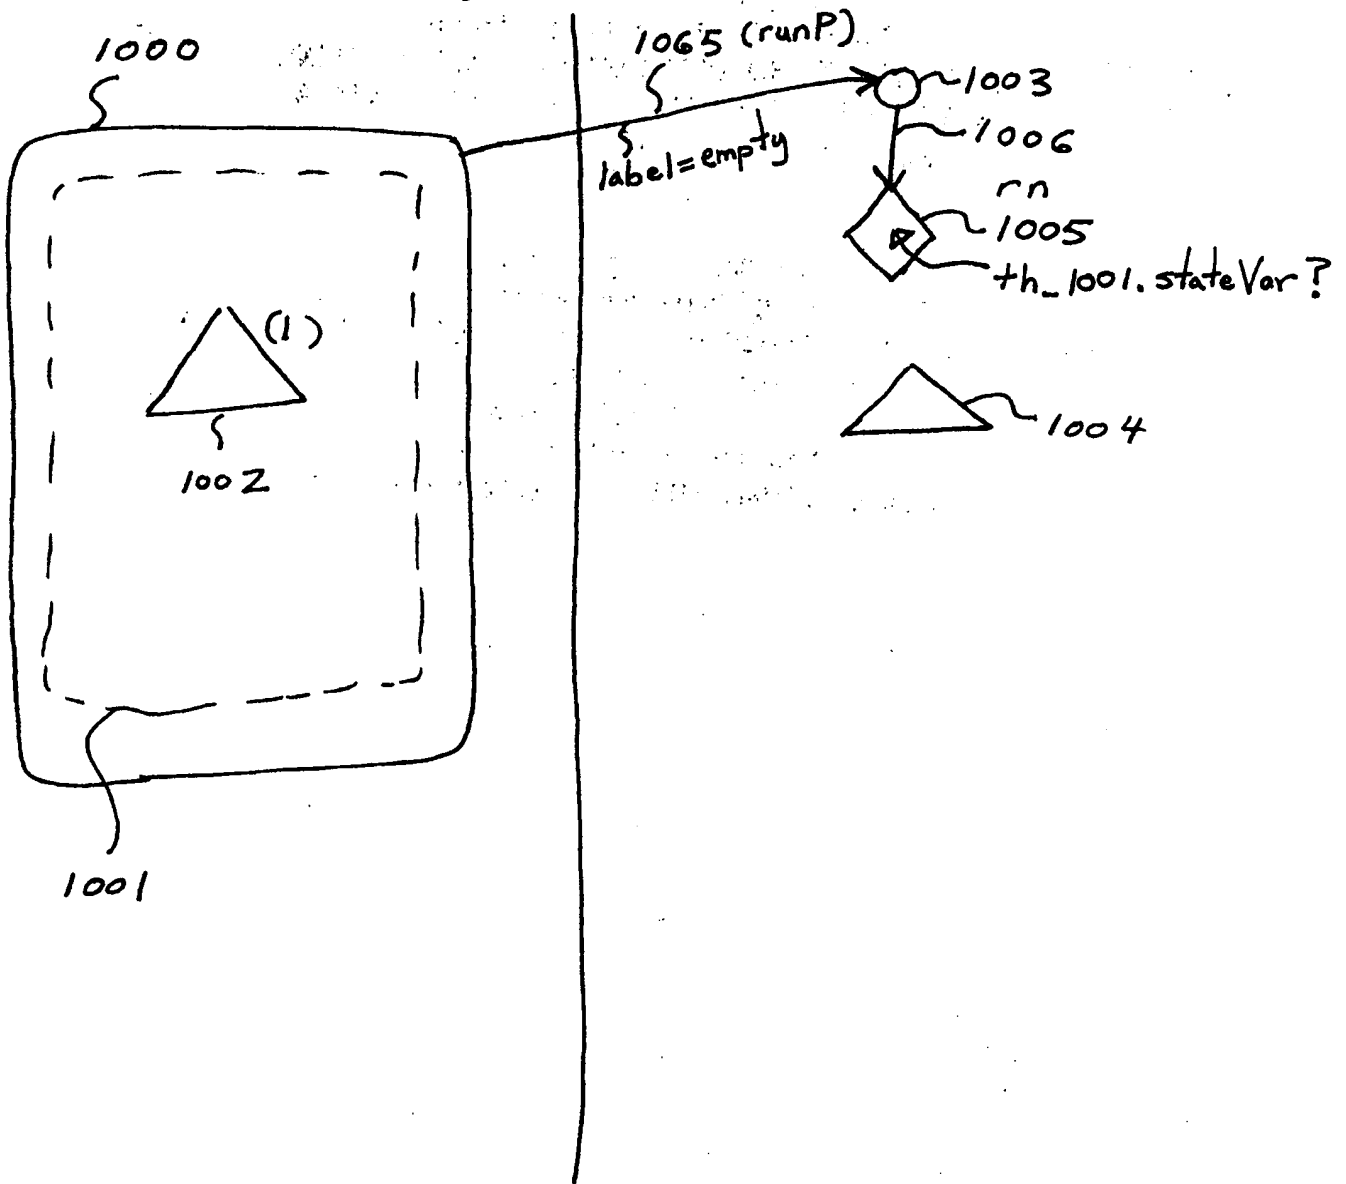 1000
1065 (runP)
1003
label=empty
1006
rn
1005
th_1001.stateVar?
(1)
1004
1002
1001